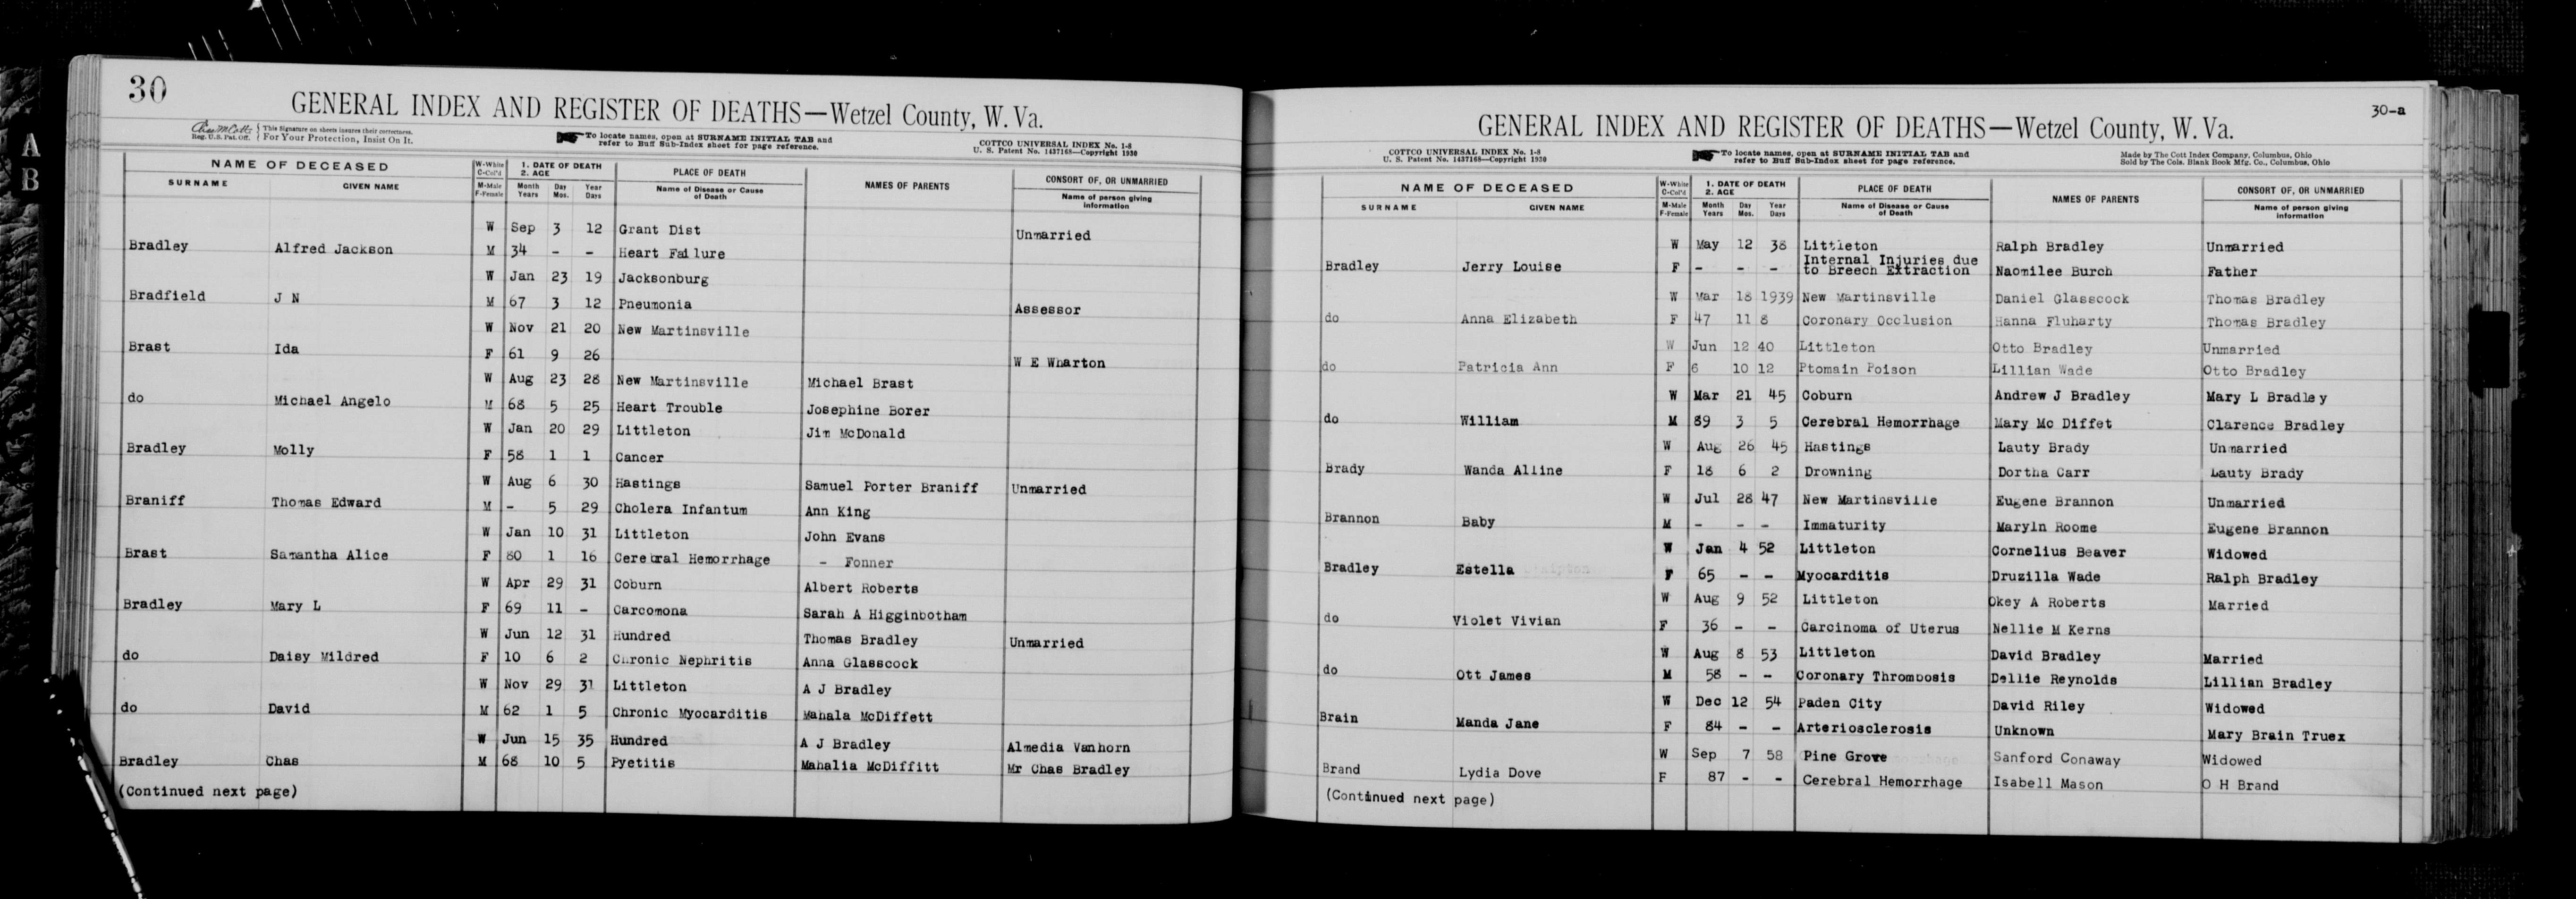 30
GENERAL INDEX AND REGISTER OF DEATHS—Wetzel County, W. Va.
Reg. U. S. Pat. Off. This Signature on sheets insures their correctness. For Your Protection, Insist On It.
To locate names, open at SURNAME INITIAL TAB and refer to Buff Sub-Index sheet for page reference.
COTTCO UNIVERSAL INDEX No. 1-8
U. S. Patent No. 1437168—Copyright 1930
NAME OF DECEASED
SURNAME GIVEN NAME
W-White C-Col'd M-Male F-Female
1. DATE OF DEATH
2. AGE
Month Day Year
Years Mos. Days
PLACE OF DEATH
Name of Disease or Cause of Death
NAMES OF PARENTS
CONSORT OF, OR UNMARRIED
Name of person giving information
W Sep 3 12 Grant Dist Unmarried
Bradley Alfred Jackson M 34 - - Heart Failure
W Jan 23 19 Jacksonburg
Bradfield J N M 67 3 12 Pneumonia Assessor
W Nov 21 20 New Martinsville
Brast Ida F 61 9 26 W E Wharton
W Aug 23 28 New Martinsville Michael Brast
do Michael Angelo M 68 5 25 Heart Trouble Josephine Borer
W Jan 20 29 Littleton Jim McDonald
Bradley Molly F 58 1 1 Cancer
W Aug 6 30 Hastings Samuel Porter Braniff Unmarried
Braniff Thomas Edward M - 5 29 Cholera Infantum Ann King
W Jan 10 31 Littleton John Evans
Brast Samantha Alice F 80 1 16 Cerebral Hemorrhage - Fonner
W Apr 29 31 Coburn Albert Roberts
Bradley Mary L F 69 11 - Carcomona Sarah A Higginbotham
W Jun 12 31 Hundred Thomas Bradley Unmarried
do Daisy Mildred F 10 6 2 Chronic Nephritis Anna Glasscock
W Nov 29 31 Littleton A J Bradley
do David M 62 1 5 Chronic Myocarditis Mahala McDiffett
W Jun 15 35 Hundred A J Bradley Almedia Vanhorn
Bradley Chas M 68 10 5 Pyetitis Mahalia McDiffitt Mr Chas Bradley
(Continued next page)
30-a
GENERAL INDEX AND REGISTER OF DEATHS—Wetzel County, W. Va.
COTTCO UNIVERSAL INDEX No. 1-8
U. S. Patent No. 1437168—Copyright 1930
To locate names, open at SURNAME INITIAL TAB and refer to Buff Sub-Index sheet for page reference.
Made by The Cott Index Company, Columbus, Ohio
Sold by The Cols. Blank Book Mfg. Co., Columbus, Ohio
NAME OF DECEASED
SURNAME GIVEN NAME
W-White C-Col'd M-Male F-Female
1. DATE OF DEATH
2. AGE
Month Day Year
Years Mos. Days
PLACE OF DEATH
Name of Disease or Cause of Death
NAMES OF PARENTS
CONSORT OF, OR UNMARRIED
Name of person giving information
W May 12 38 Littleton Ralph Bradley Unmarried
Bradley Jerry Louise F - - - Internal Injuries due to Breech Extraction Naomilee Burch Father
W Mar 18 1939 New Martinsville Daniel Glasscock Thomas Bradley
do Anna Elizabeth F 47 11 8 Coronary Occlusion Hanna Fluharty Thomas Bradley
W Jun 12 40 Littleton Otto Bradley Unmarried
do Patricia Ann F 6 10 12 Ptomain Poison Lillian Wade Otto Bradley
W Mar 21 45 Coburn Andrew J Bradley Mary L Bradley
do William M 89 3 5 Cerebral Hemorrhage Mary Mc Diffet Clarence Bradley
W Aug 26 45 Hastings Lauty Brady Unmarried
Brady Wanda Alline F 18 6 2 Drowning Dortha Carr Lauty Brady
W Jul 28 47 New Martinsville Eugene Brannon Unmarried
Brannon Baby M - - - Immaturity Maryln Roome Eugene Brannon
W Jan 4 52 Littleton Cornelius Beaver Widowed
Bradley Estella F 65 - - Myocarditis Druzilla Wade Ralph Bradley
W Aug 9 52 Littleton Okey A Roberts Married
do Violet Vivian F 36 - - Carcinoma of Uterus Nellie M Kerns
W Aug 8 53 Littleton David Bradley Married
do Ott James M 58 - - Coronary Thrombosis Dellie Reynolds Lillian Bradley
W Dec 12 54 Paden City David Riley Widowed
Brain Manda Jane F 84 - - Arteriosclerosis Unknown Mary Brain Truex
W Sep 7 58 Pine Grove Sanford Conaway Widowed
Brand Lydia Dove F 87 - - Cerebral Hemorrhage Isabell Mason O H Brand
(Continued next page)
A
B